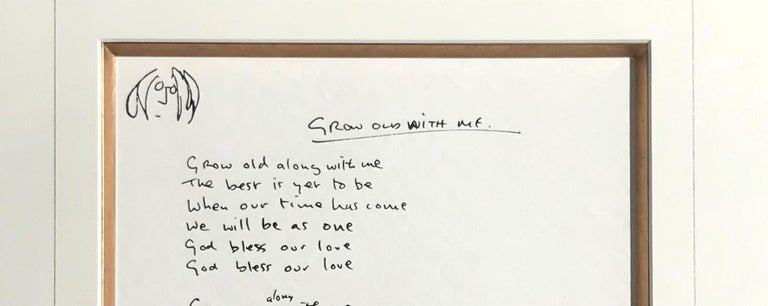 GROW OLD WITH ME.
Grow old along with me
The best is yet to be
When our time has come
We will be as one
God bless our love
God bless our love
along